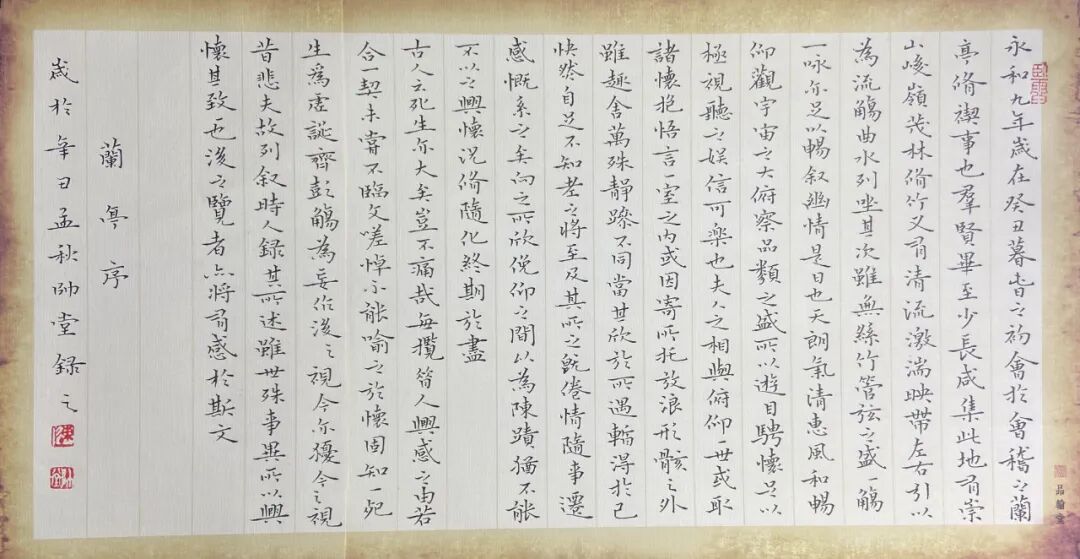 永和九年歲在癸丑暮春之初會於會稽之蘭
亭脩禊事也羣賢畢至少長咸集此地有崇
山峻嶺茂林脩竹又有清流激湍映帶左右引以
為流觴曲水列坐其次雖無絲竹管弦之盛一觴
一詠亦足以暢叙幽情是日也天朗氣清惠風和暢
仰觀宇宙之大俯察品類之盛所以遊目騁懷足以
極視聽之娛信可樂也夫人之相與俯仰一世或取
諸懷抱悟言一室之內或因寄所托放浪形骸之外
雖趣舍萬殊靜躁不同當其欣於所遇蹔得於己
快然自足不知老之將至及其所之既倦情隨事遷
感慨系之矣向之所欣俛仰之間以為陳蹟猶不能
不以之興懷況脩隨化終期於盡
古人云死生亦大矣豈不痛哉每攬昔人興感之由若
合一契未嘗不臨文嗟悼不能喻之於懷固知一死
生為虛誕齊彭觴為妄作後之視今亦猶今之視
昔悲夫故列叙時人録其所述雖世殊事異所以興
懷其致也後之覽者亦將有感於斯文
蘭亭序
歲於辛丑孟秋帥堂録之
品翰堂